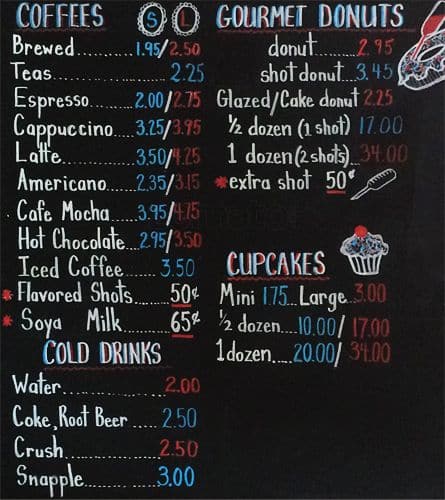 COFFEES S L
Brewed..........1.95/2.50
Teas....................2.25
Espresso.......2.00/2.75
Cappuccino....3.25/3.95
Latte..............3.50/4.25
Americano.....2.35/3.15
Cafe Mocha....3.95/4.75
Hot Chocolate..2.95/3.50
Iced Coffee...... 3.50
* Flavored Shots......50¢
* Soya Milk......65¢
COLD DRINKS
Water...................2.00
Coke, Root Beer.....2.50
Crush...................2.50
Snapple...............3.00
GOURMET DONUTS
donut.......2.95
shot donut...3.45
Glazed/Cake donut 2.25
½ dozen (1 shot) 17.00
1 dozen (2 shots)...34.00
*extra shot 50¢
CUPCAKES
Mini 1.75..Large..3.00
½ dozen....10.00/ 17.00
1 dozen....20.00/ 34.00